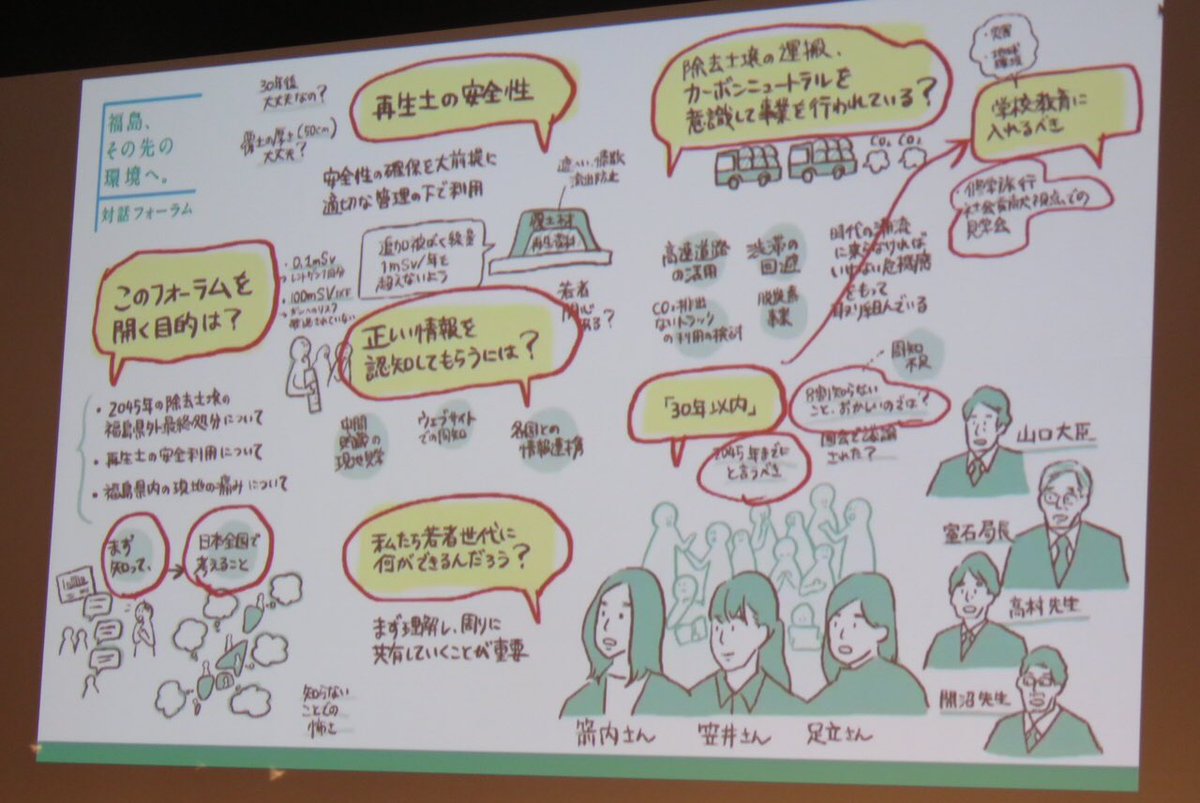 福島、
その先の
環境へ。
対話フォーラム
30年後
大丈夫なの?
覆土の厚さ(50cm)
大丈夫?
再生土の安全性
安全性の確保を大前提に
適切な管理の下で利用
追加被ばく線量
1mSv/年を
超えないよう
遮へい・飛散
流出防止
覆土材
再生資材
このフォーラムを
開く目的は?
・2045年の除去土壌の
福島県外最終処分について
・再生土の安全利用について
・福島県内の現地の痛みについて
まず
知って、
日本全国で
考えること
・0.1mSv
レントゲン1回分
・100mSv以下
ガンへのリスク
確認されていない
正しい情報を
認知してもらうには?
若者
関心
ある?
中間
貯蔵の
現地見学
ウェブサイト
での周知
各国との
情報連携
私たち若者世代に
何ができるんだろう?
まず理解し、周りに
共有していくことが重要
知らない
ことでの
怖さ
除去土壌の運搬、
カーボンニュートラルを
意識して事業を行われている?
CO2 CO2
高速道路
の活用
渋滞の
回避
CO2排出
ないトラック
の利用の検討
脱炭素
事業
時代の潮流
に乗らなければ
いけない危機感
をもって
取り組んでいる
・災害
・地球
環境
学校教育に
入れるべき
・修学旅行
社会貢献の視点での
見学会
「30年以内」
2045年までに
と言うべき
8割知らない
こと、おかしいのでは?
周知
不足
国会で議論
された?
山口大臣
室石局長
高村先生
開沼先生
箭内さん
笠井さん
足立さん